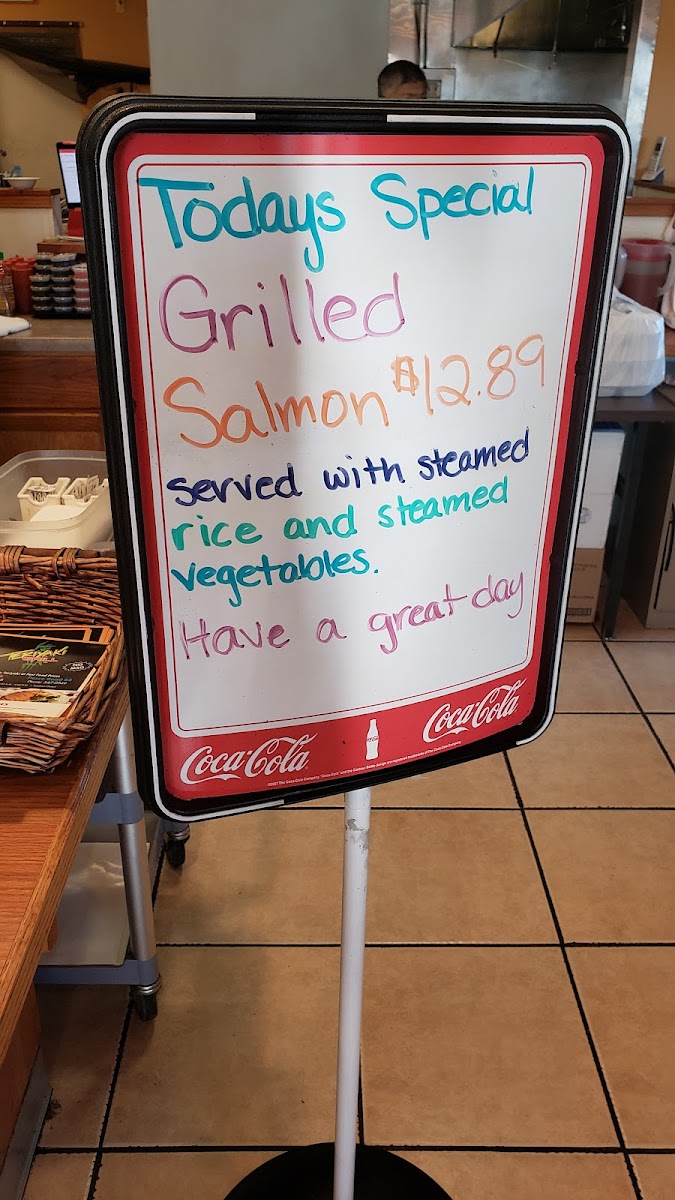 Todays Special
Grilled
Salmon $12.89
served with steamed
rice and steamed
vegetables.
Have a great day
Coca-Cola
Coca-Cola
TERIYAKI